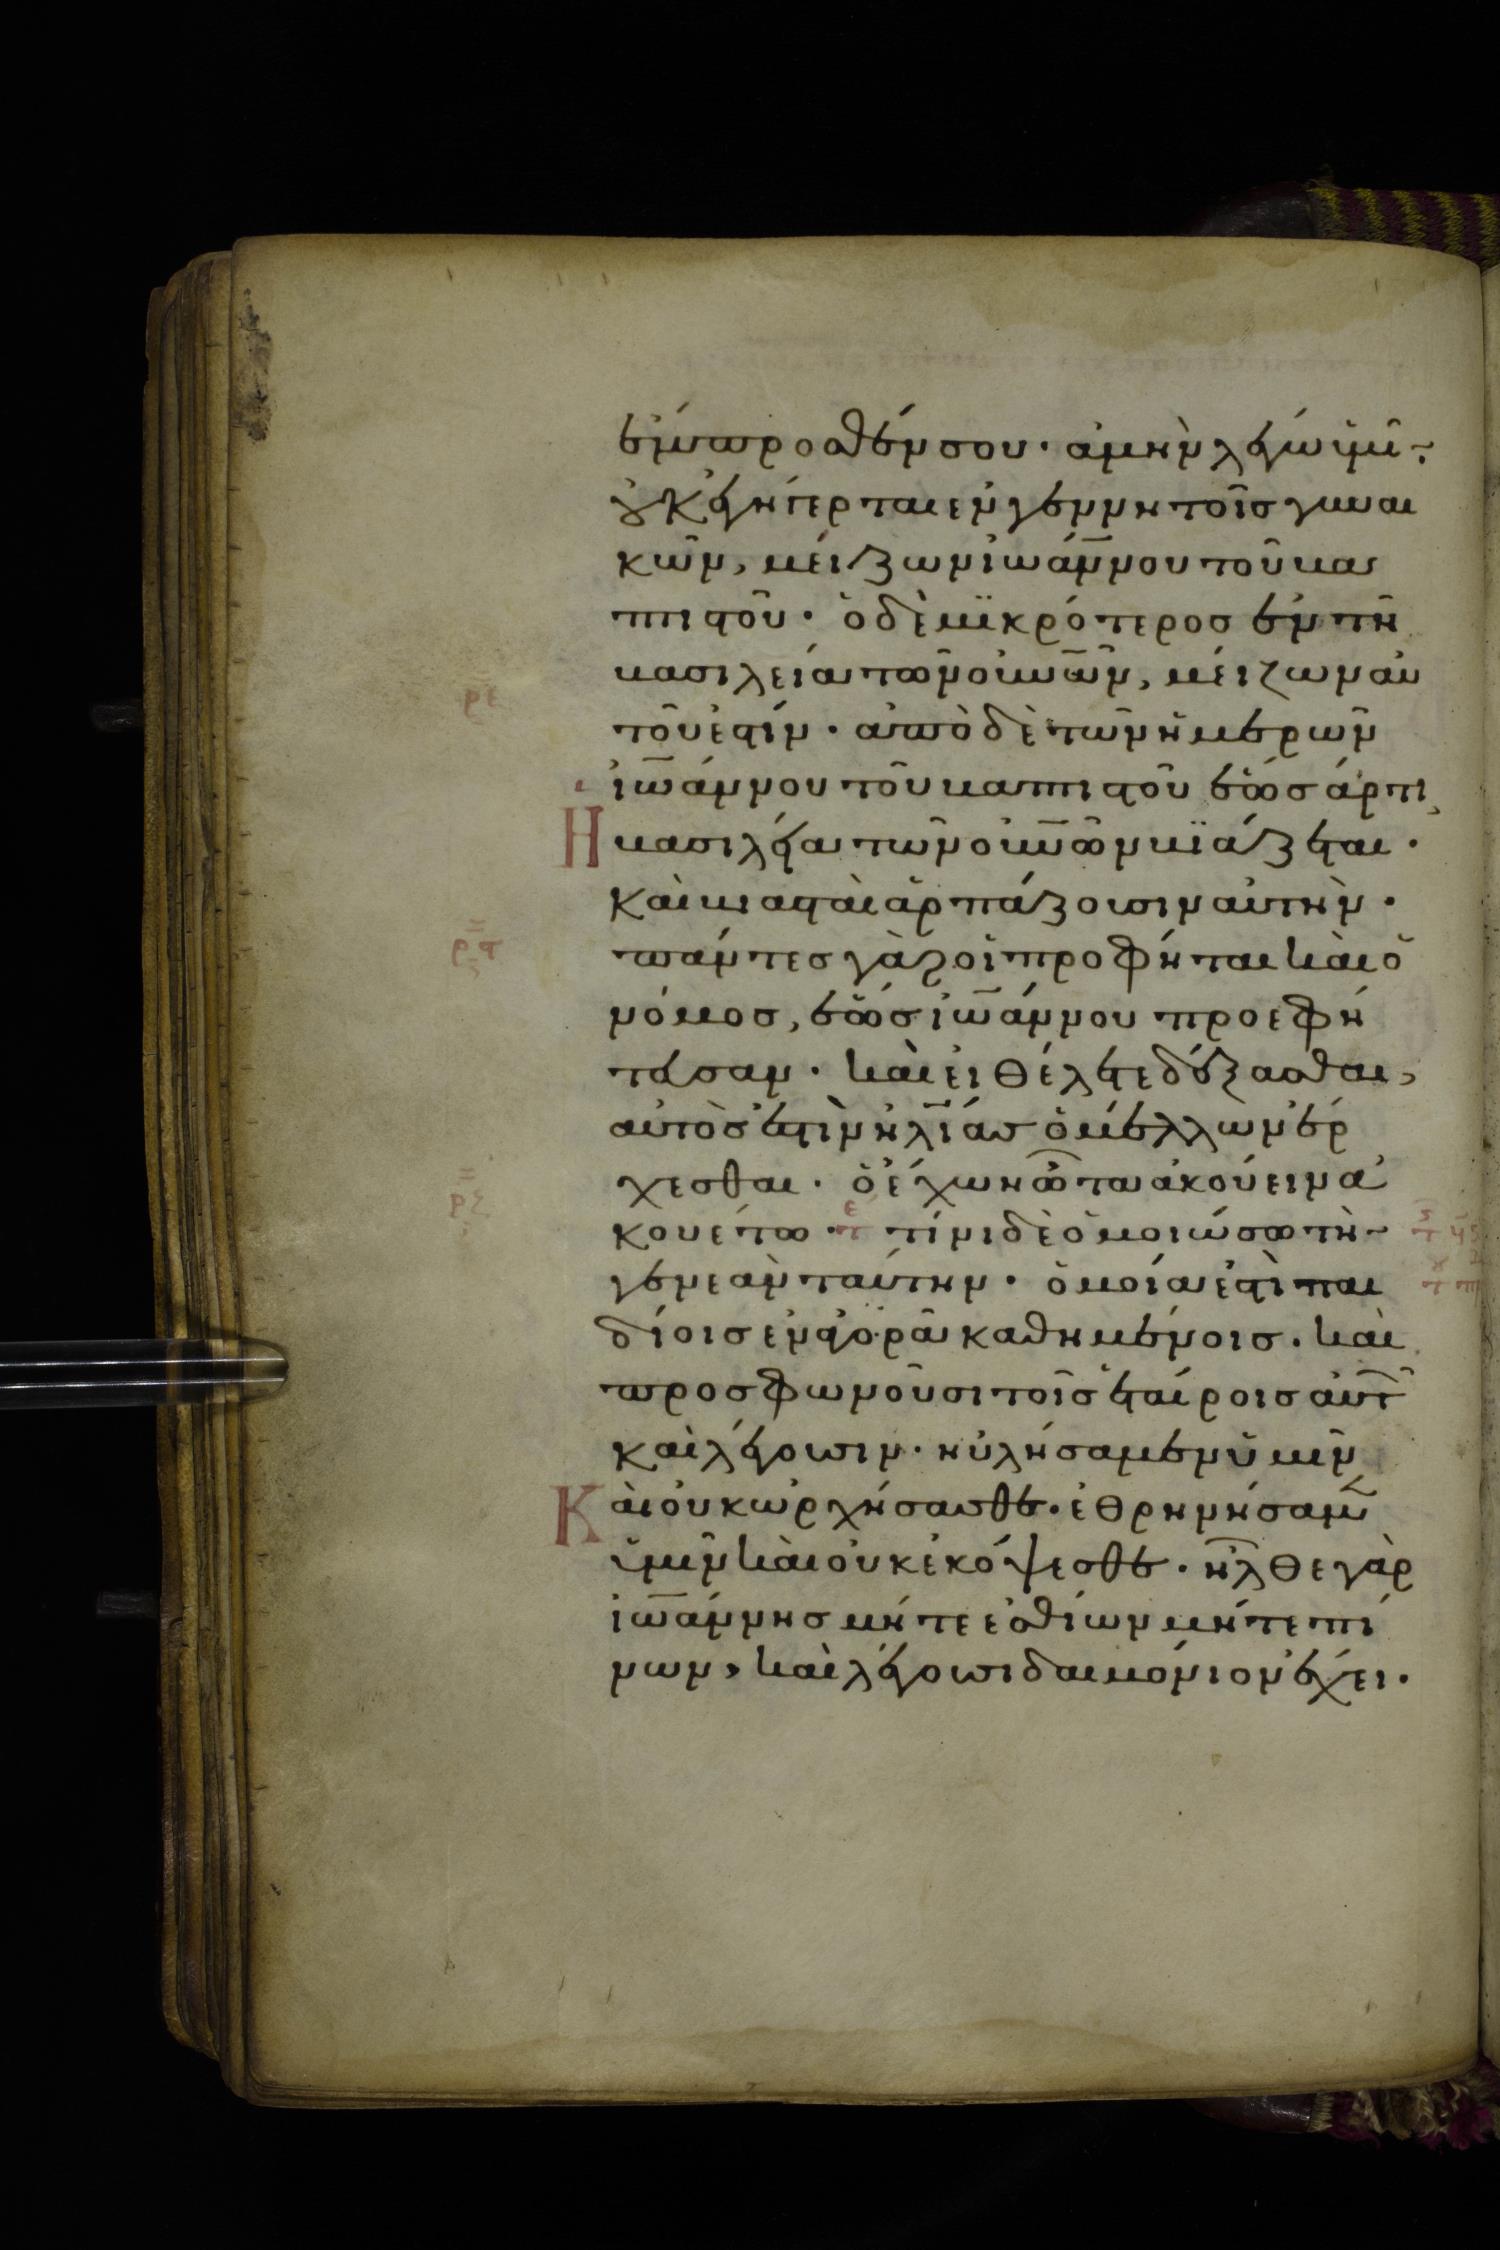 ἔμπροσθέν σου · ἀμὴν λέγω ὑμῖ
οὐκ ἐγήγερται ἐν γεννητοῖς γυναι
κῶν, μείζων ἰωάννου τοῦ βα
πτιστοῦ · ὁ δὲ μϊκρότερος ἐν τῆ
ρε βασιλεία τῶν οὐνῶν, μείζων αὐ
τοῦ ἐστίν · ἀπὸ δὲ τῶν ἡμερῶν
ἰωάννου τοῦ βαπτιστοῦ ἕως ἄρτι,
Η βασιλεία τῶν οὐνῶν βϊάζεται ·
καὶ βιασταὶ ἁρπάζουσιν αὐτὴν ·
πάντες γὰρ οἱ προφῆται καὶ ὁ
νόμος, ἕως ἰωάννου προεφή
τευσαν · καὶ εἰ θέλετε δέξασθαι,
αὐτός ἐστιν ἠλίας ὁ μέλλων ἔρ
χεσθαι · ὁ ἔχων ὦτα ἀκούειν ἀ
κουέτω · τε τίνι δὲ ὁμοιώσω τὴ
γενεὰν ταύτην · ὁμοία ἐστὶ παι
δίοις ἐν ἀγορᾶ καθημένοις · καὶ
προσφωνοῦσι τοῖς ἑταίροις αὐτ
καὶ λέγουσιν · ηὐλήσαμεν ὑμῖν
Καὶ οὐκ ὠρχήσασθε · ἐθρηνήσαμ
ὑμῖν καὶ οὐκ ἐκόψεσθε · ἦλθε γὰρ
ἰωάννης μήτε ἐσθίων μήτε πί
νων, καὶ λέγουσι δαιμόνιον ἔχει ·